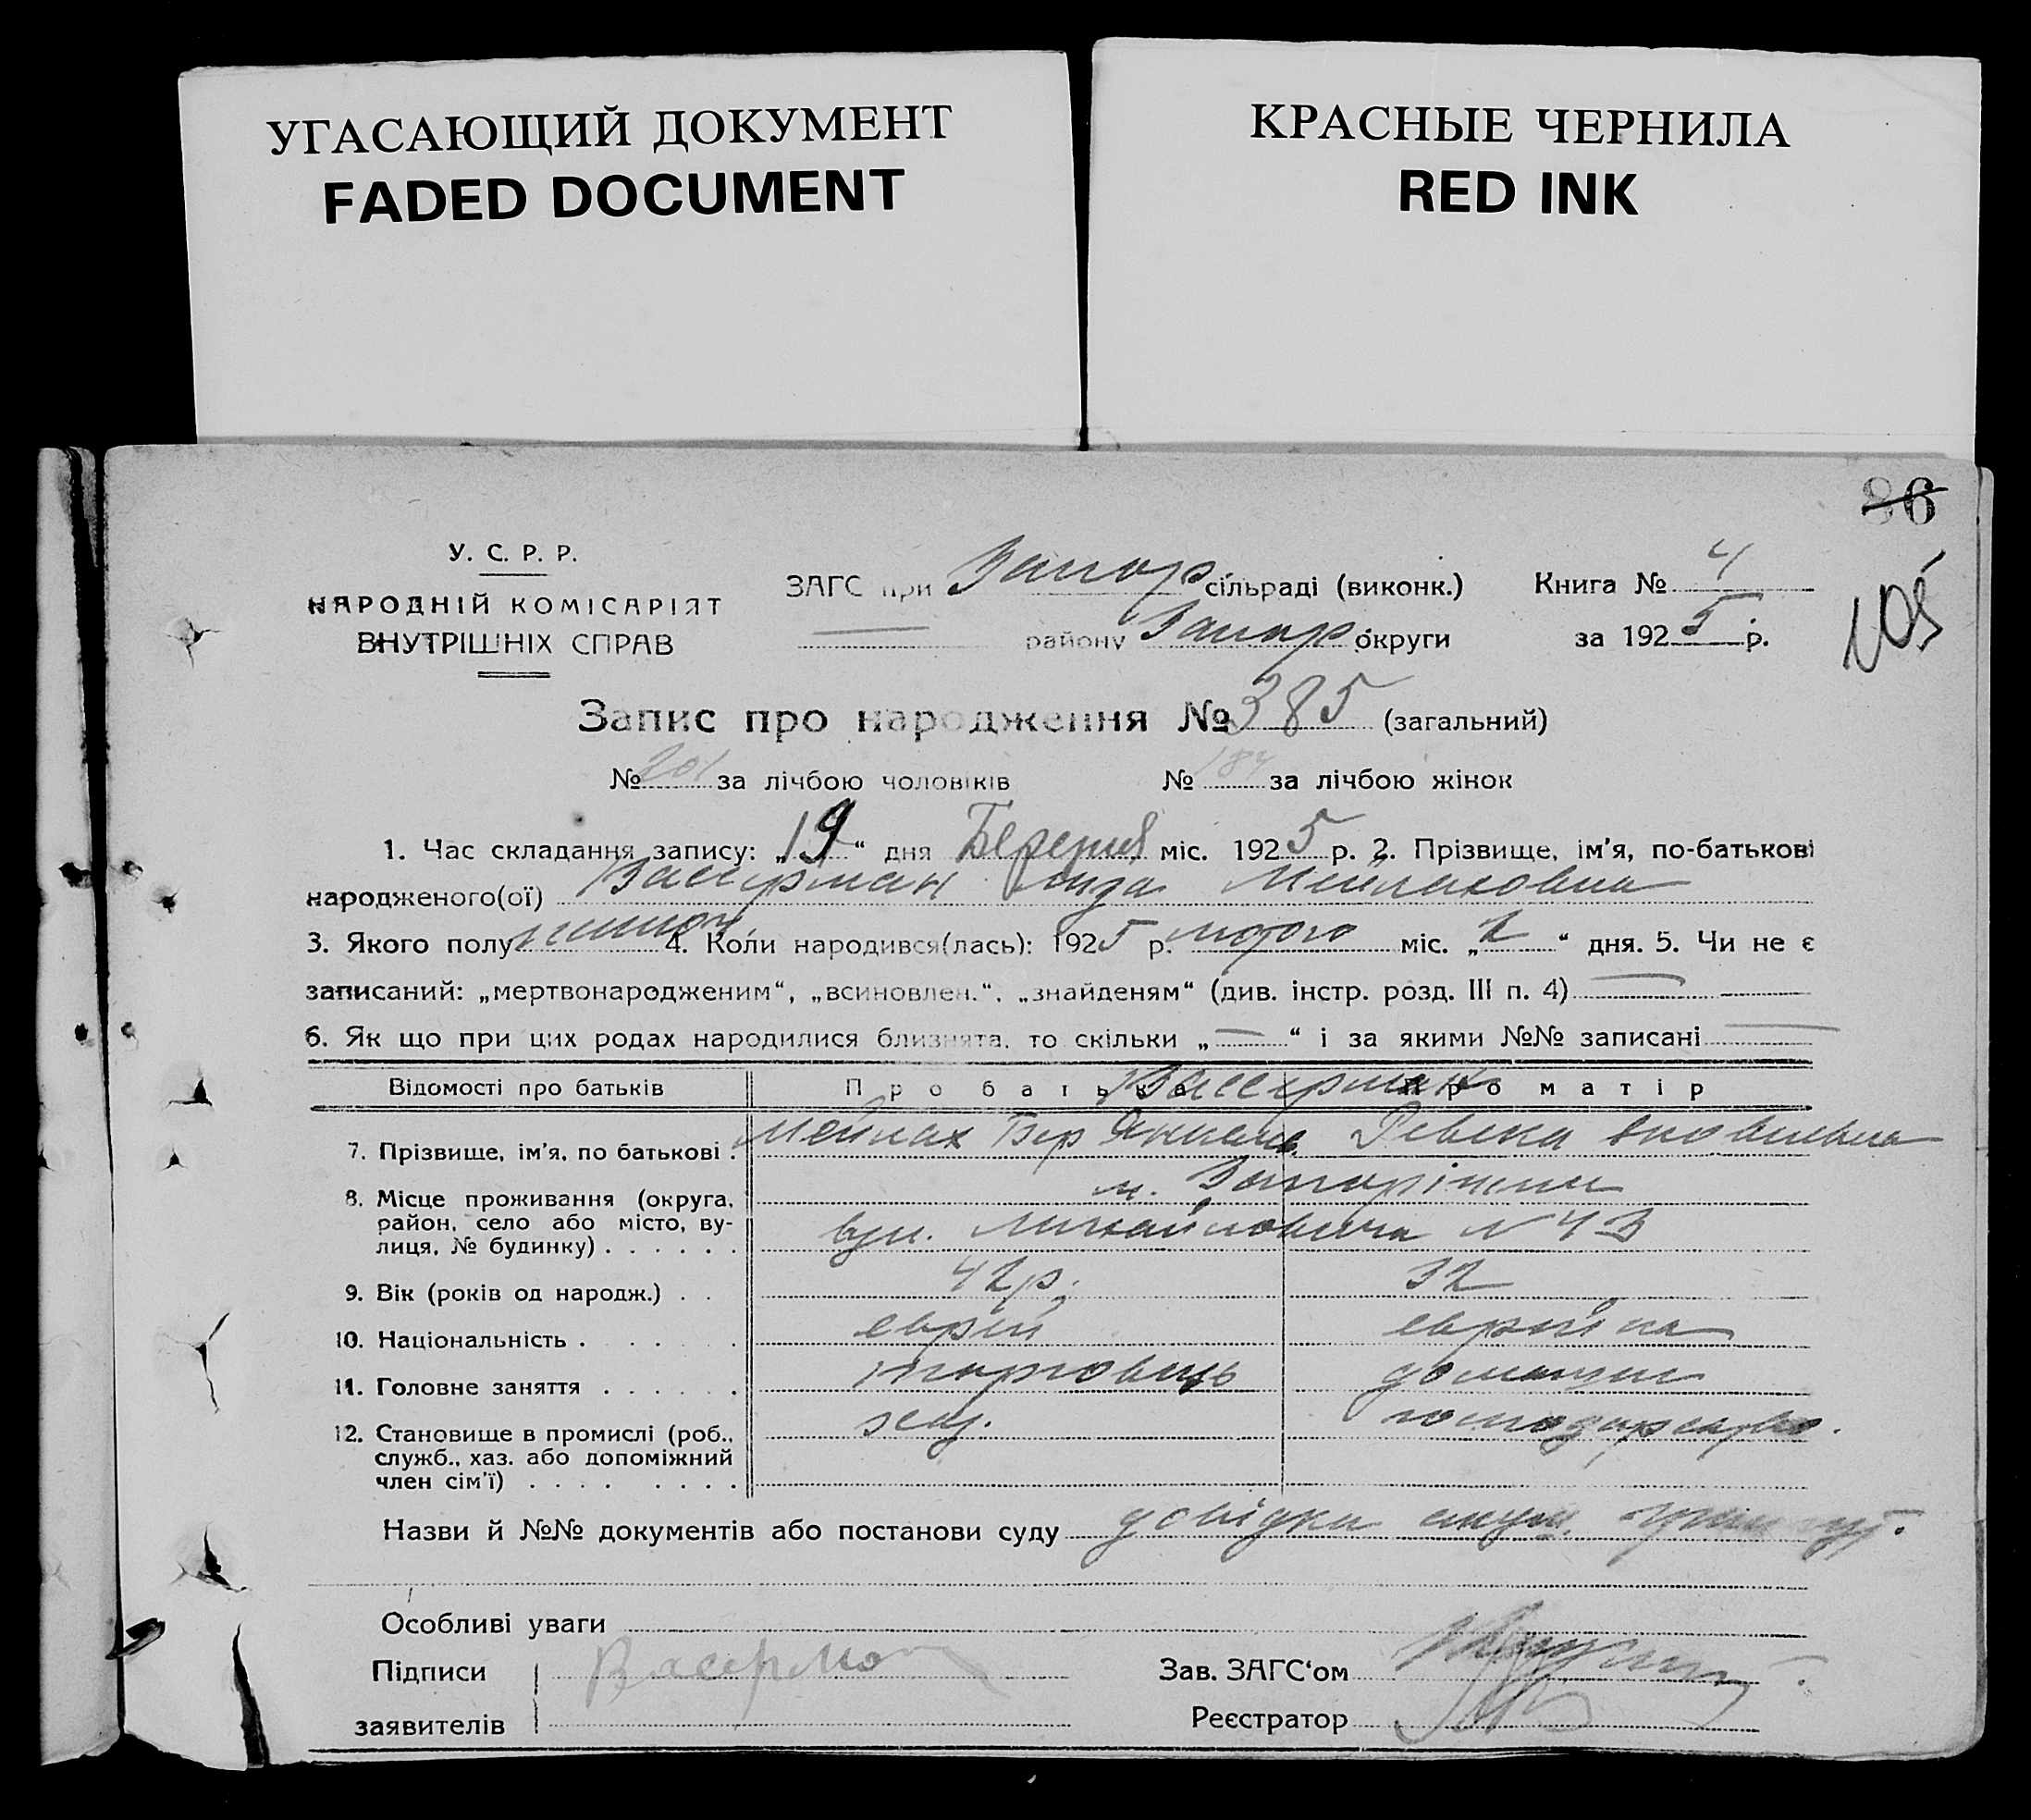 УГАСАЮЩИЙ ДОКУМЕНТ
FADED DOCUMENT
КРАСНЫЕ ЧЕРНИЛА
RED INK
86
105
У. С. Р. Р.
НАРОДНІЙ КОМІСАРІЯТ
ВНУТРІШНІХ СПРАВ
ЗАГС при Запор. сільраді (виконк.)
району Запор округи
Книга № 4
за 1925 р.
Запис про народження № 385 (загальний)
№ 201 за лічбою чоловіків № 184 за лічбою жінок
1. Час складання запису: „19“ дня Березня міс. 1925 р. 2. Прізвище, ім'я, по-батькові
народженого(ої) Вассерман Мейлаховна
3. Якого полу 4. Коли народився(лась): 1925 р. лютого міс. „2“ дня. 5. Чи не є
записаний: „мертвонародженим“, „всиновлен.“, „знайденям“ (див. інстр. розд. III п. 4)
6. Як що при цих родах народилися близнята, то скільки „—“ і за якими №№ записані
Відомості про батьків Про батька Про матір
Вассерман
7. Прізвище, ім'я, по батькові . Мейлах Бер Янкелев. Ревека
м. Запоріжжя
8. Місце проживання (округа,
район, село або місто, ву-
лиця, № будинку) . . . . . . вул. № 43
9. Вік (років од народж.) . . 42 р. 32
10. Національність . . . . . . еврей еврейка
11. Головне заняття . . . . . . торговець домашнє
12. Становище в промислі (роб.,
служб., хаз. або допоміжний
член сім'ї) . . . . . . . . господарство.
Назви й №№ документів або постанови суду довідка акуш.
Особливі уваги
Підписи
заявителів
Васерман
Зав. ЗАГС'ом
Реєстратор